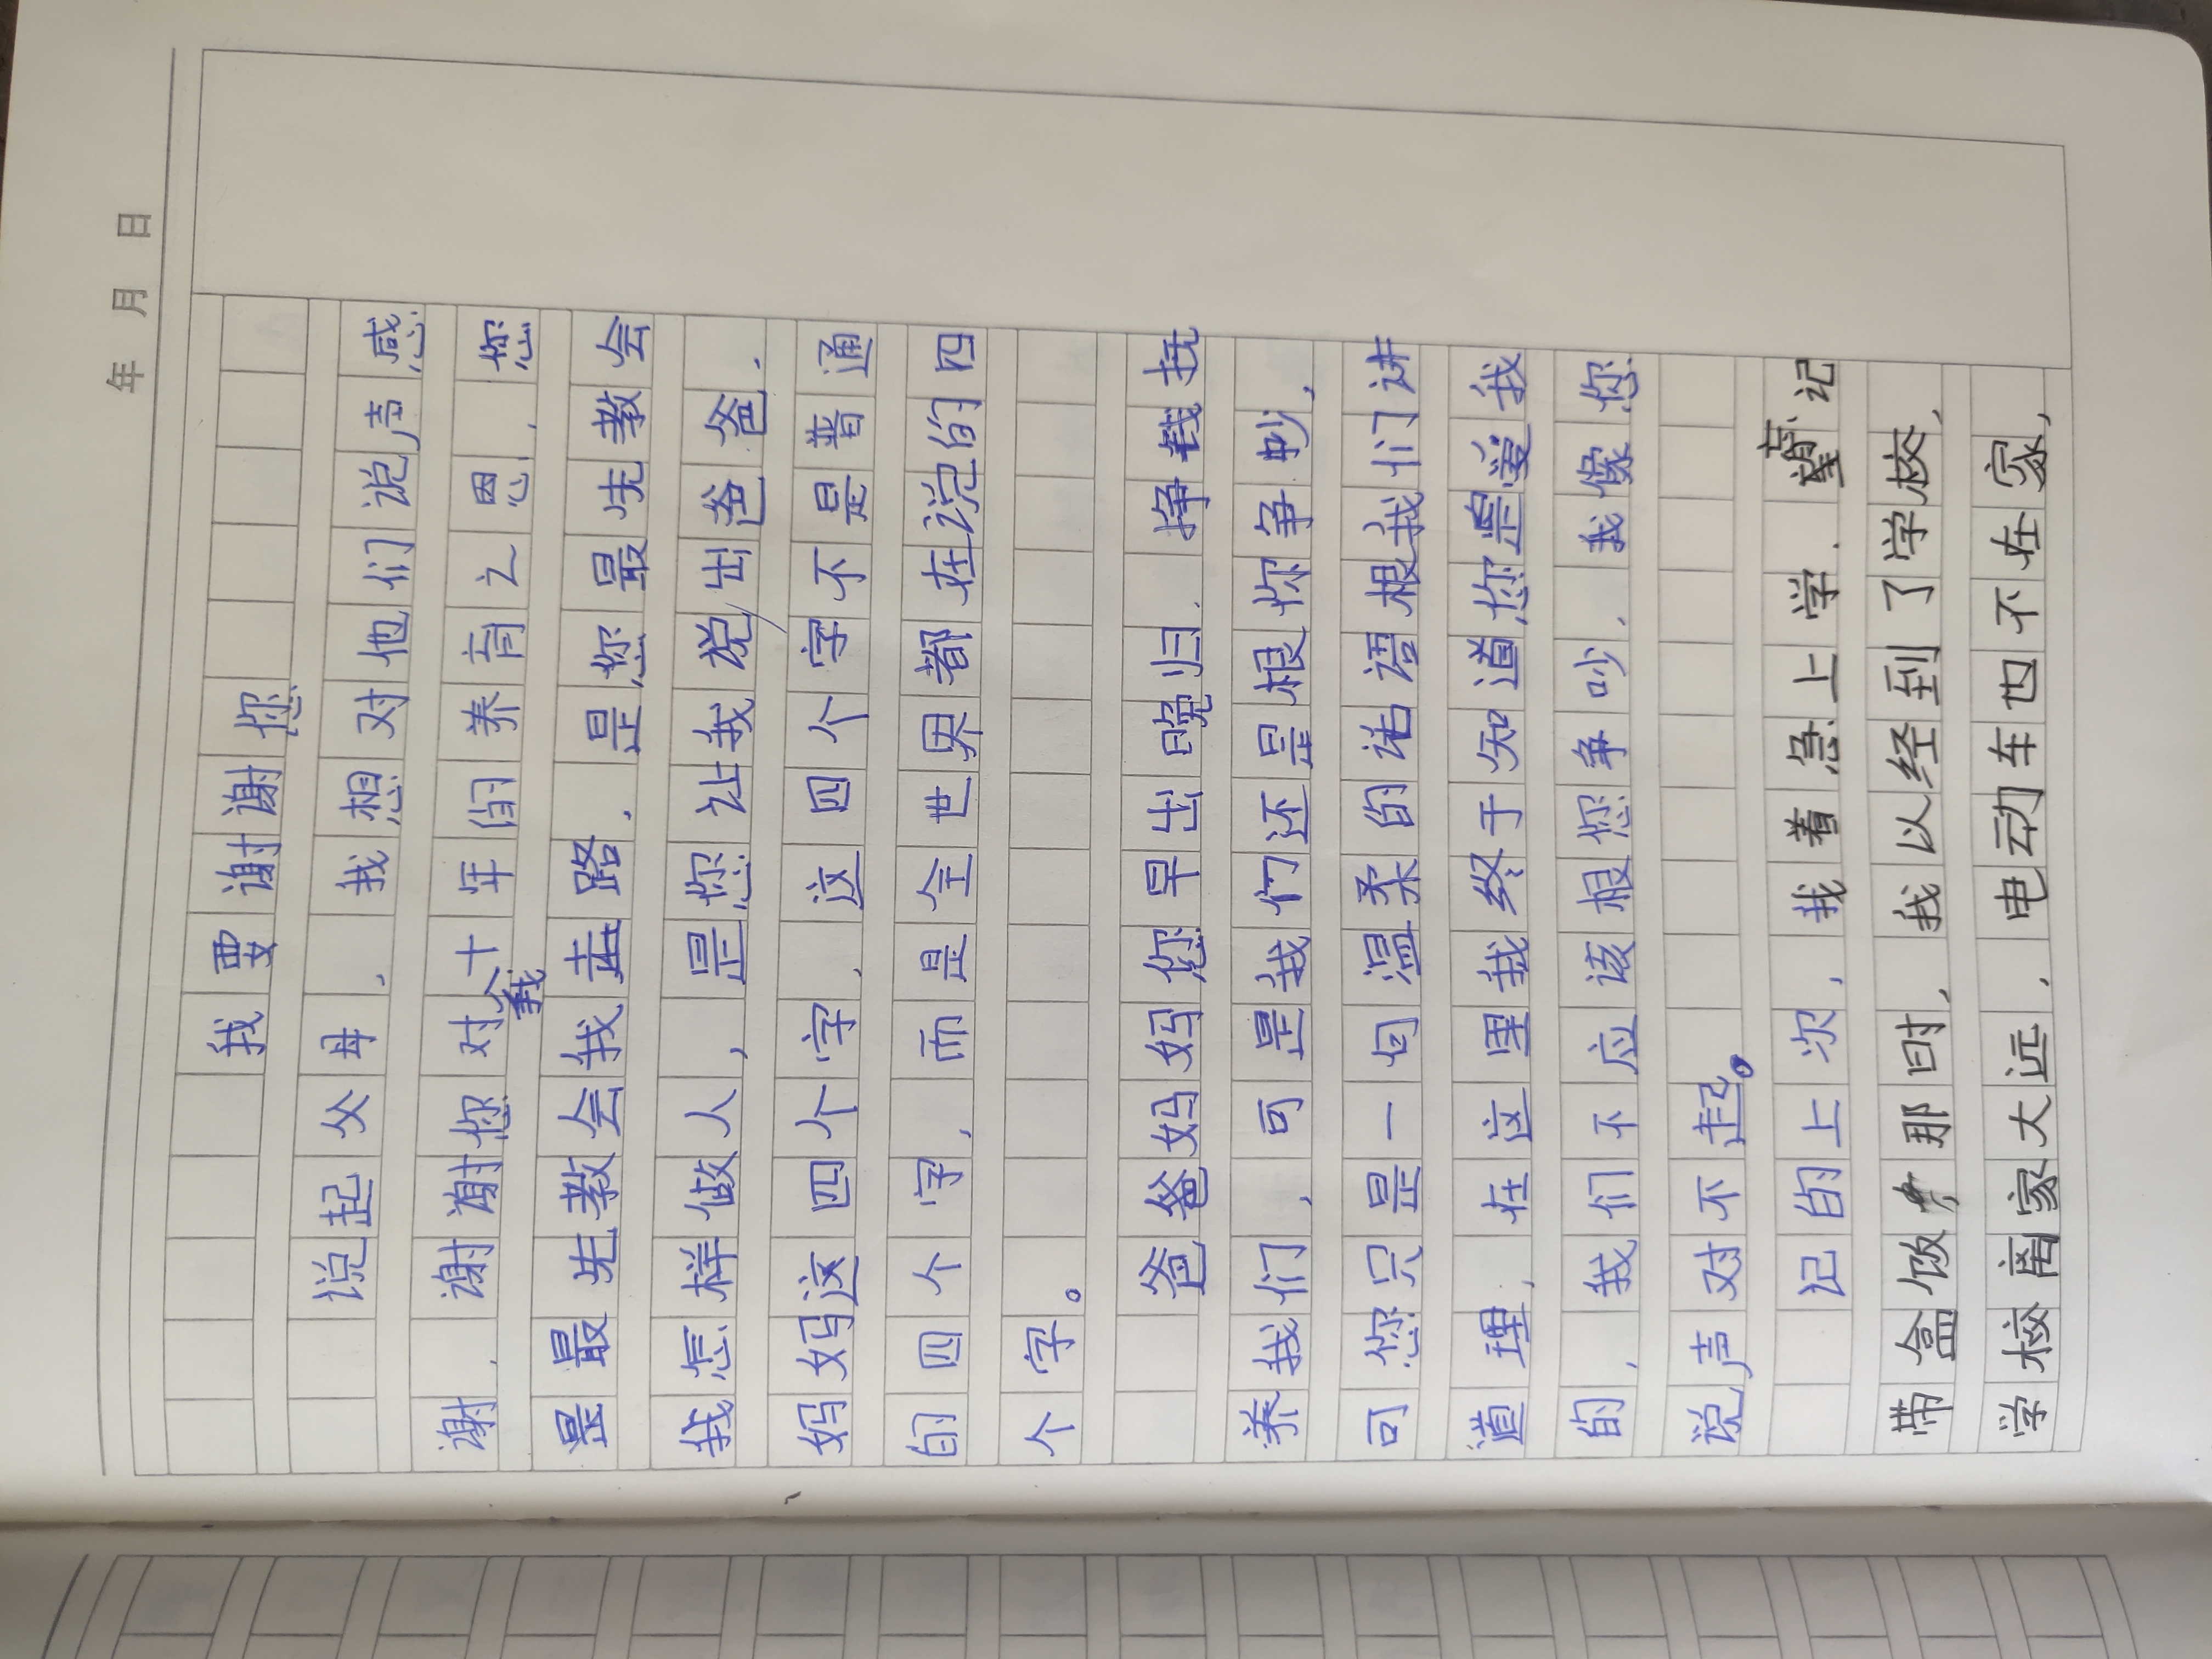 年 月 日
我要谢谢您
说起父母，我想对他们说声感
谢，谢谢您对我十年的养育之恩，您
是最先教会我走路，是您最先教会
我怎样做人，是您让我说出爸爸，
妈妈这四个字，这四个字不是普通
的四个字，而是全世界都在说的四
个字。
爸爸妈妈您早出晚归，挣钱抚
养我们，可是我们还是根你争吵，
可您只是一句温柔的话语根我们讲
道理，在这里我终于知道您是爱我
的，我们不应该根您争吵，我像您
说声对不起。
记的上次，我着急上学，忘记
带盒饭，那时，我以经到了学校，
学校离家大远，电动车四不在家，